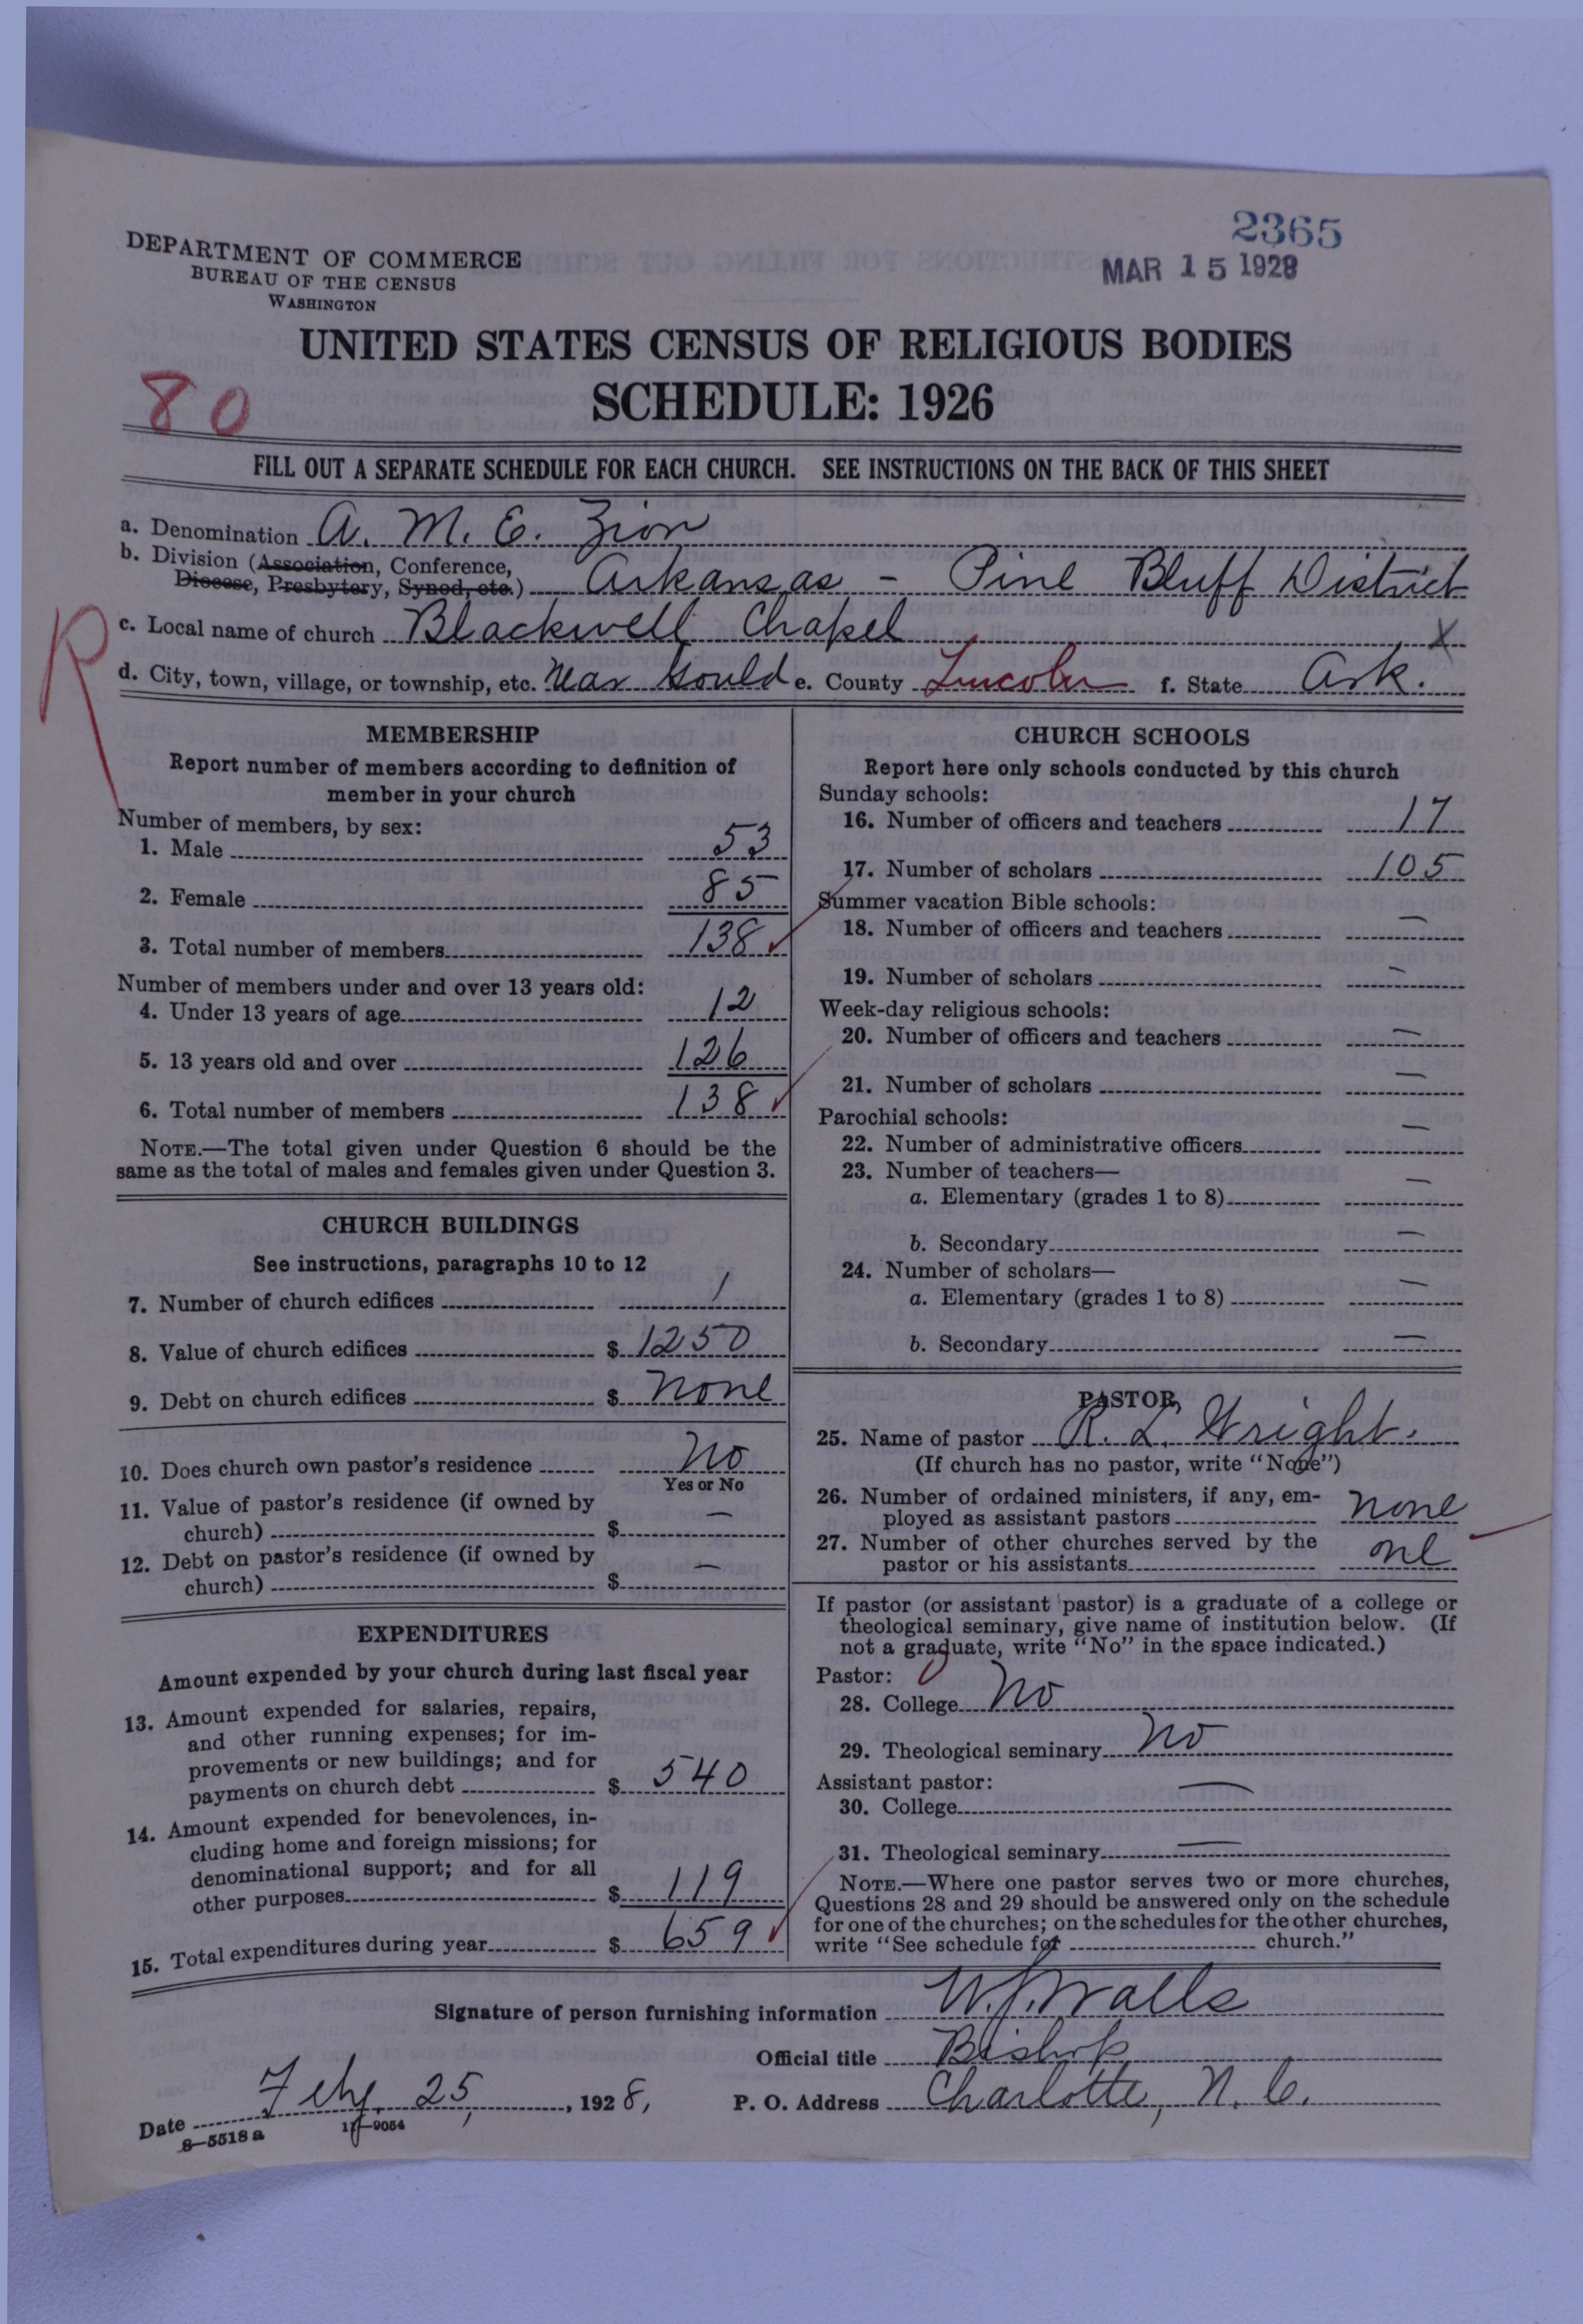 2365
MAR 15 1928
DEPARTMENT OF COMMERCE
BUREAU OF THE CENSUS
WASHINGTON
UNITED STATES CENSUS OF RELIGIOUS BODIES
SCHEDULE: 1926
80
FILL OUT A SEPARATE SCHEDULE FOR EACH CHURCH. SEE INSTRUCTIONS ON THE BACK OF THIS SHEET
a. Denomination A. M. E. Zion
b. Division (Association, Conference,
Diocese, Presbytery, Synod, etc.) Arkansas - Pine Bluff District
R
c. Local name of church Blackwell Chapel X
d. City, town, village, or township, etc. Near Gould e. County Lincoln f. State Ark.
MEMBERSHIP
Report number of members according to definition of
member in your church
Number of members, by sex:
1. Male 53
2. Female 85
3. Total number of members 138
Number of members under and over 13 years old:
4. Under 13 years of age 12
5. 13 years old and over 126
6. Total number of members 138
NOTE.—The total given under Question 6 should be the
same as the total of males and females given under Question 3.
CHURCH BUILDINGS
See instructions, paragraphs 10 to 12
7. Number of church edifices 1
8. Value of church edifices $ 1250
9. Debt on church edifices $ none
10. Does church own pastor's residence No
Yes or No
11. Value of pastor's residence (if owned by
church) $ —
12. Debt on pastor's residence (if owned by
church) $ —
EXPENDITURES
Amount expended by your church during last fiscal year
13. Amount expended for salaries, repairs,
and other running expenses; for im-
provements or new buildings; and for
payments on church debt $ 540
14. Amount expended for benevolences, in-
cluding home and foreign missions; for
denominational support; and for all
other purposes $ 119
15. Total expenditures during year $ 659
CHURCH SCHOOLS
Report here only schools conducted by this church
Sunday schools:
16. Number of officers and teachers 17
17. Number of scholars 105
Summer vacation Bible schools:
18. Number of officers and teachers —
19. Number of scholars —
Week-day religious schools:
20. Number of officers and teachers —
21. Number of scholars —
Parochial schools:
22. Number of administrative officers —
23. Number of teachers—
a. Elementary (grades 1 to 8) —
b. Secondary —
24. Number of scholars—
a. Elementary (grades 1 to 8) —
b. Secondary —
PASTOR
25. Name of pastor R. L. Wright.
(If church has no pastor, write "None")
26. Number of ordained ministers, if any, em-
ployed as assistant pastors none
27. Number of other churches served by the
pastor or his assistants one
If pastor (or assistant pastor) is a graduate of a college or
theological seminary, give name of institution below. (If
not a graduate, write "No" in the space indicated.)
Pastor:
28. College No
29. Theological seminary No
Assistant pastor:
30. College —
31. Theological seminary —
NOTE.—Where one pastor serves two or more churches,
Questions 28 and 29 should be answered only on the schedule
for one of the churches; on the schedules for the other churches,
write "See schedule for church."
Signature of person furnishing information W. J. Walls
Official title Bishop
Date Feby. 25, , 1928, P. O. Address Charlotte, N. C.
8—5518 a 11—9054